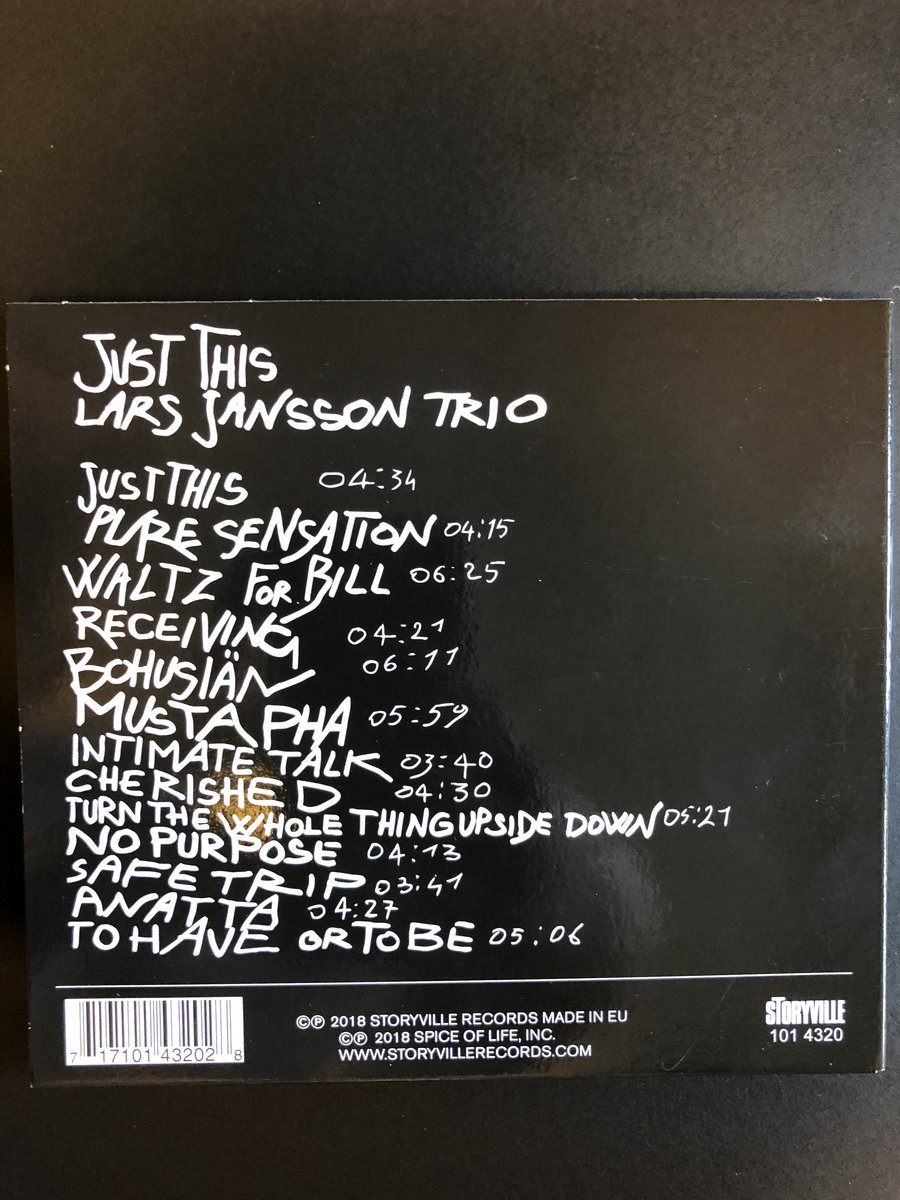 JUST THIS
LARS JANSSON TRIO
JUST THIS 04:34
PURE SENSATION 04:15
WALTZ FOR BILL 06:25
RECEIVING 04:21
BOHUSLÄN 06:11
MUSTAPHA 05:59
INTIMATE TALK 03:40
CHERISHED 04:30
TURN THE WHOLE THING UPSIDE DOWN 05:21
NO PURPOSE 04:13
SAFE TRIP 03:41
ANATTA 04:27
TO HAVE OR TO BE 05:06
©℗ 2018 STORYVILLE RECORDS MADE IN EU
©℗ 2018 SPICE OF LIFE, INC.
WWW.STORYVILLERECORDS.COM
STORYVILLE
101 4320
7 17101 43202 8